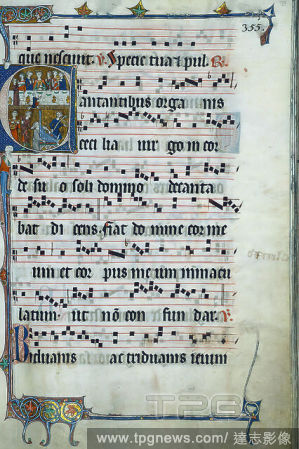 355.
que nescivit. V. Specie tua et pul. R.
Cantantibus orga nis
ceci lia vir go in cor
de su o soli domino decanta
bat di cens. fiat do mine cor me
um et cor pus me um inmacu
latum. ut nō con fun dar. V.
Biduanis ac triduanis ieiun
TPG
www.tpgnews.com/達志影像